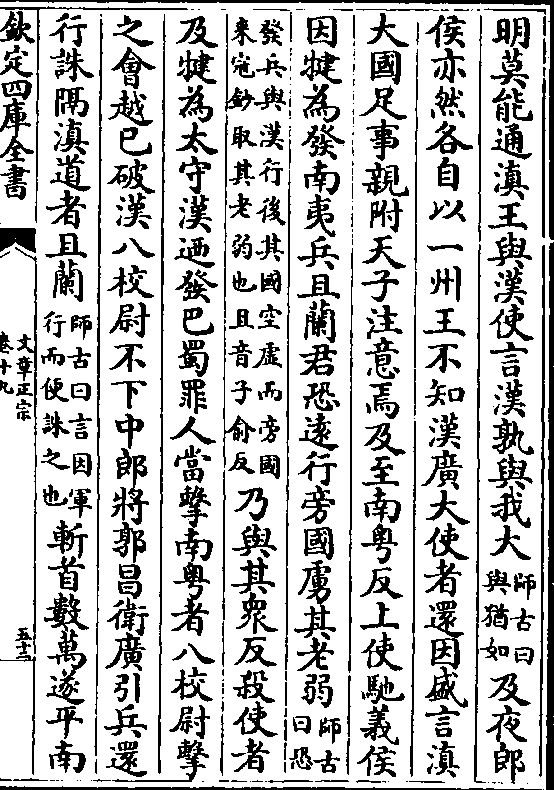 明莫能通滇王與漢使言漢孰與我大師古曰與猶如及夜郎
侯亦然各自以一州王不知漢廣大使者還因盛言滇
大國足事親附天子注意焉及至南粤反上使馳義侯
因犍為發南夷兵且蘭君恐遠行旁國虜其老弱師古曰恐
發兵與漢行後其國空虛而旁國來宼鈔取其老弱也且音子俞反乃與其衆反殺使者
及犍為太守漢迺發巴蜀罪人當擊南粤者八校尉擊
之會越已破漢八校尉不下中郎將郭昌衛廣引兵還
行誅隔滇道者且蘭師古曰言因軍行而便誅之也斬首數萬遂平南
欽定四庫全書
文章正宗
卷十九